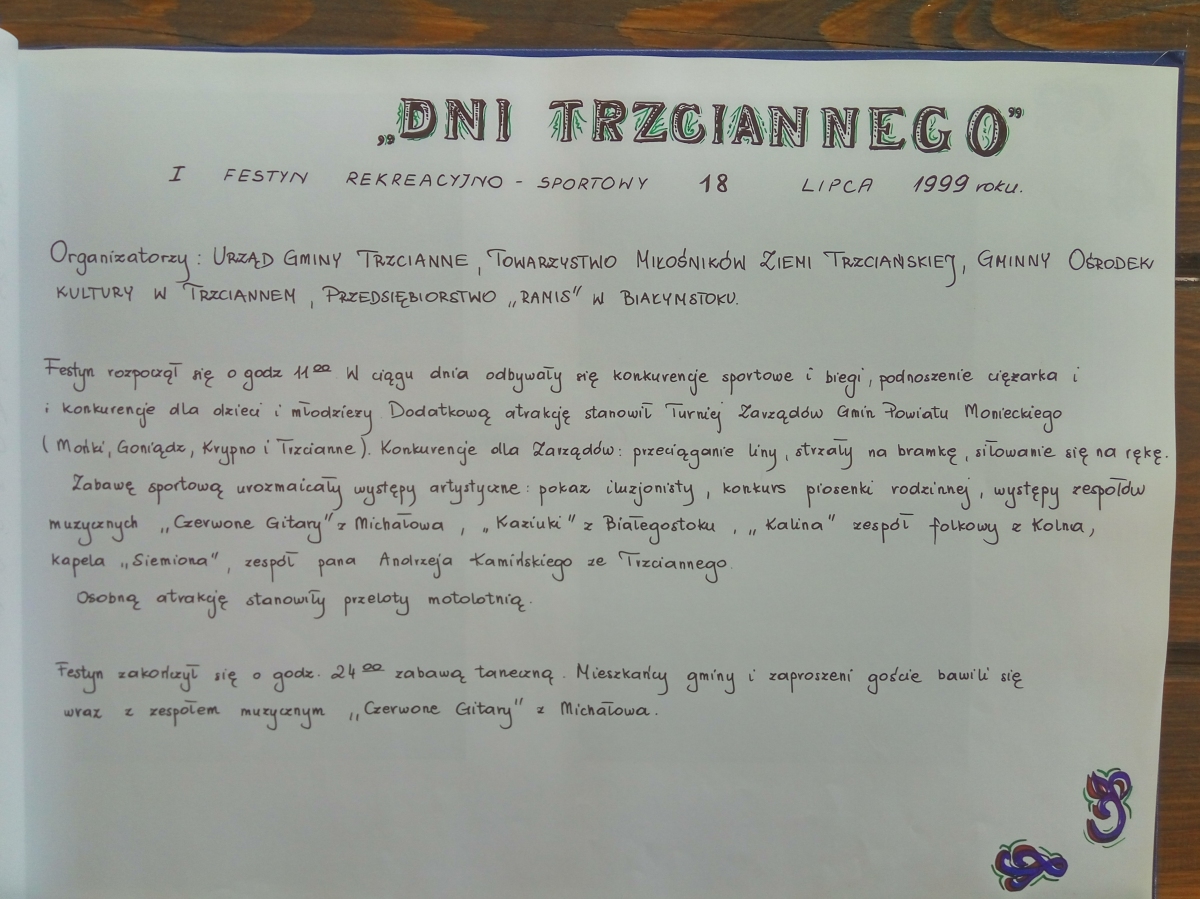 „DNI TRZCIANNEGO”
I FESTYN REKREACYJNO - SPORTOWY 18 LIPCA 1999 roku.
Organizatorzy : URZĄD GMINY TRZCIANNE, TOWARZYSTWO MIŁOŚNIKÓW ZIEMI TRZCIAŃSKIEJ, GMINNY OŚRODEK
KULTURY W TRZCIANNEM, PRZEDSIĘBIORSTWO „RAMIS" W BIAŁYMSTOKU.
Festyn rozpoczął się o godz 11⁰⁰. W ciągu dnia odbywały się konkurencje sportowe i biegi, podnoszenie ciężarka i
i konkurencje dla dzieci i młodzieży Dodatkową atrakcję stanowił Turniej Zarządów Gmin Powiatu Monieckiego
(Mońki, Goniądz, Krypno i Trzcianne). Konkurencje dla Zarządów: przeciąganie liny, strzały na bramkę, siłowanie się na rękę.
Zabawę sportową urozmaicały występy artystyczne: pokaz iluzjonisty, konkurs piosenki rodzinnej, występy zespołów
muzycznych „Czerwone Gitary" z Michałowa, „Kaziuki" z Białegostoku, „Kalina" zespół folkowy z Kolna,
kapela „Siemiona", zespół pana Andrzeja Kamińskiego ze Trzciannego.
Osobną atrakcję stanowiły przeloty motolotnią.
Festyn zakończył się o godz. 24⁰⁰ zabawą taneczną. Mieszkańcy gminy i zaproszeni goście bawili się
wraz z zespołem muzycznym „Czerwone Gitary" z Michałowa.